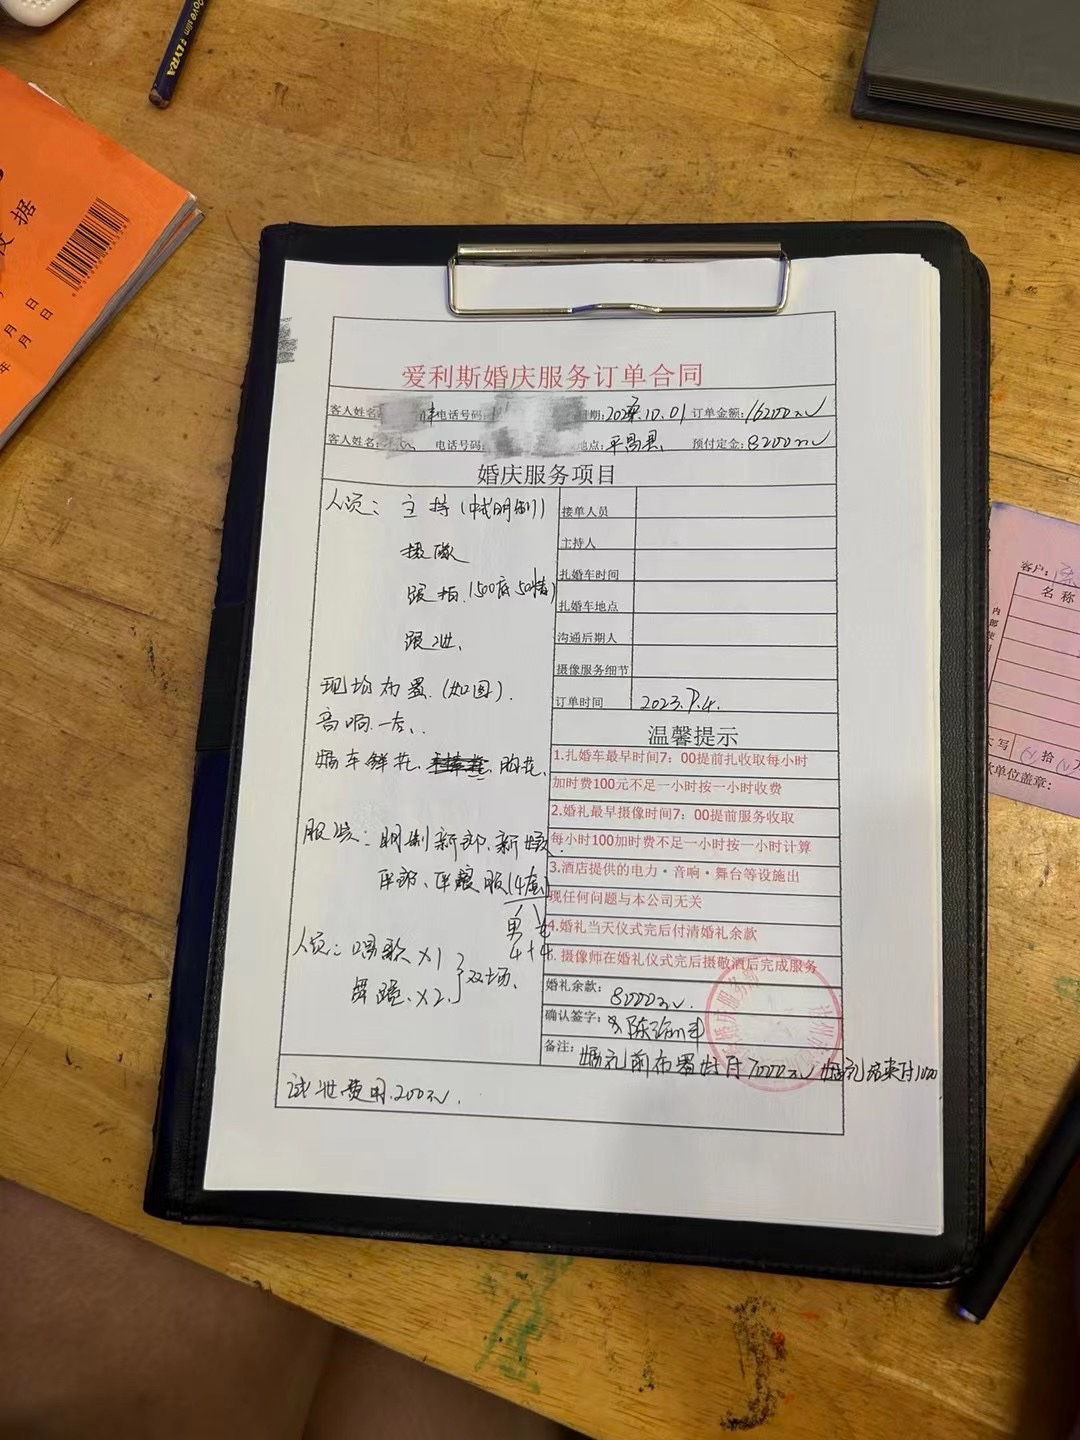 LYRA
据
月 日
年 月 日
爱利斯婚庆服务订单合同
客人姓名 电话号码: 期: 10.01 订单金额: 16200元
客人姓名: 电话号码: 地点: 平昌县 预付定金: 8200元
婚庆服务项目
人员: 主持(中式明制)
摄像
跟拍(500底50精)
跟妆
现场布置(如图)
音响一套
婚车鲜花、胸花
服装: 明制新郎、新娘
伴郎、伴娘服(4套)
男 女
4+4
人员: 唱歌X1
舞蹈X2 } 双场
试妆费用200元.
接单人员
主持人
扎婚车时间
扎婚车地点
沟通后期人
摄像服务细节
订单时间 2023.9.4.
温馨提示
1.扎婚车最早时间7：00提前扎收取每小时
加时费100元不足一小时按一小时收费
2.婚礼最早摄像时间7：00提前服务收取
每小时100加时费不足一小时按一小时计算
3.酒店提供的电力·音响·舞台等设施出
现任何问题与本公司无关
4.婚礼当天仪式完后付清婚礼余款
5. 摄像师在婚礼仪式完后摄敬酒后完成服务
婚礼余款: 8000元.
确认签字: 陈
备注: 婚礼前布置好付7000元 婚礼结束付1000
婚庆服务部
客户:
名 称
大写 拾 万
单位盖章: